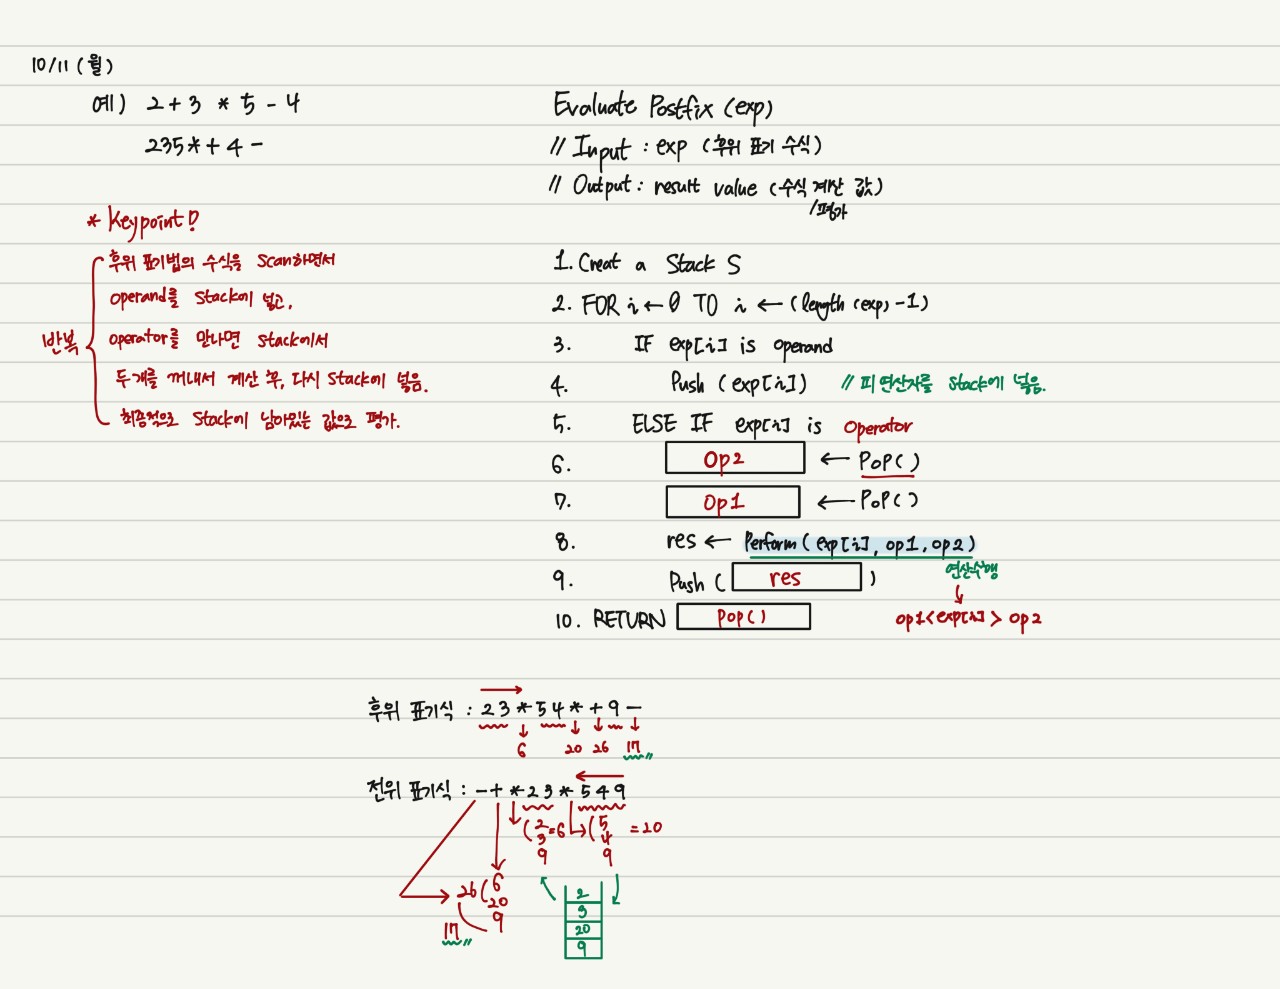 10/11 (월)
예) 2 + 3 * 5 - 4
235*+4-
* Keypoint!
반복
후위 표기법의 수식을 Scan하면서
operand를 Stack에 넣고,
operator를 만나면 Stack에서
두개를 꺼내서 계산 후, 다시 Stack에 넣음.
최종적으로 Stack에 남아있는 값으로 평가.
Evaluate Postfix (exp)
// Input : exp (후위 표기 수식)
// Output : result value (수식 계산 값)
/평가
1. Creat a Stack S
2. FOR i ← 0 TO i ← (length (exp) - 1)
3. IF exp[i] is operand
4. Push (exp[i]) // 피연산자를 Stack에 넣음.
5. ELSE IF exp[i] is Operator
6. Op2 ← POP()
7. Op1 ← POP()
8. res ← Perform( exp[i], op1, op2 )
연산수행
9. Push ( res )
op1 < exp[i] > op2
10. RETURN Pop()
후위 표기식 : 2 3 * 5 4 * + 9 -
6 20 26 17 "
전위 표기식 : - + * 2 3 * 5 4 9
( 2 3 9 = 6
( 5 4 9 = 20
26 ( 6 20 9
17 "
2
3
20
9